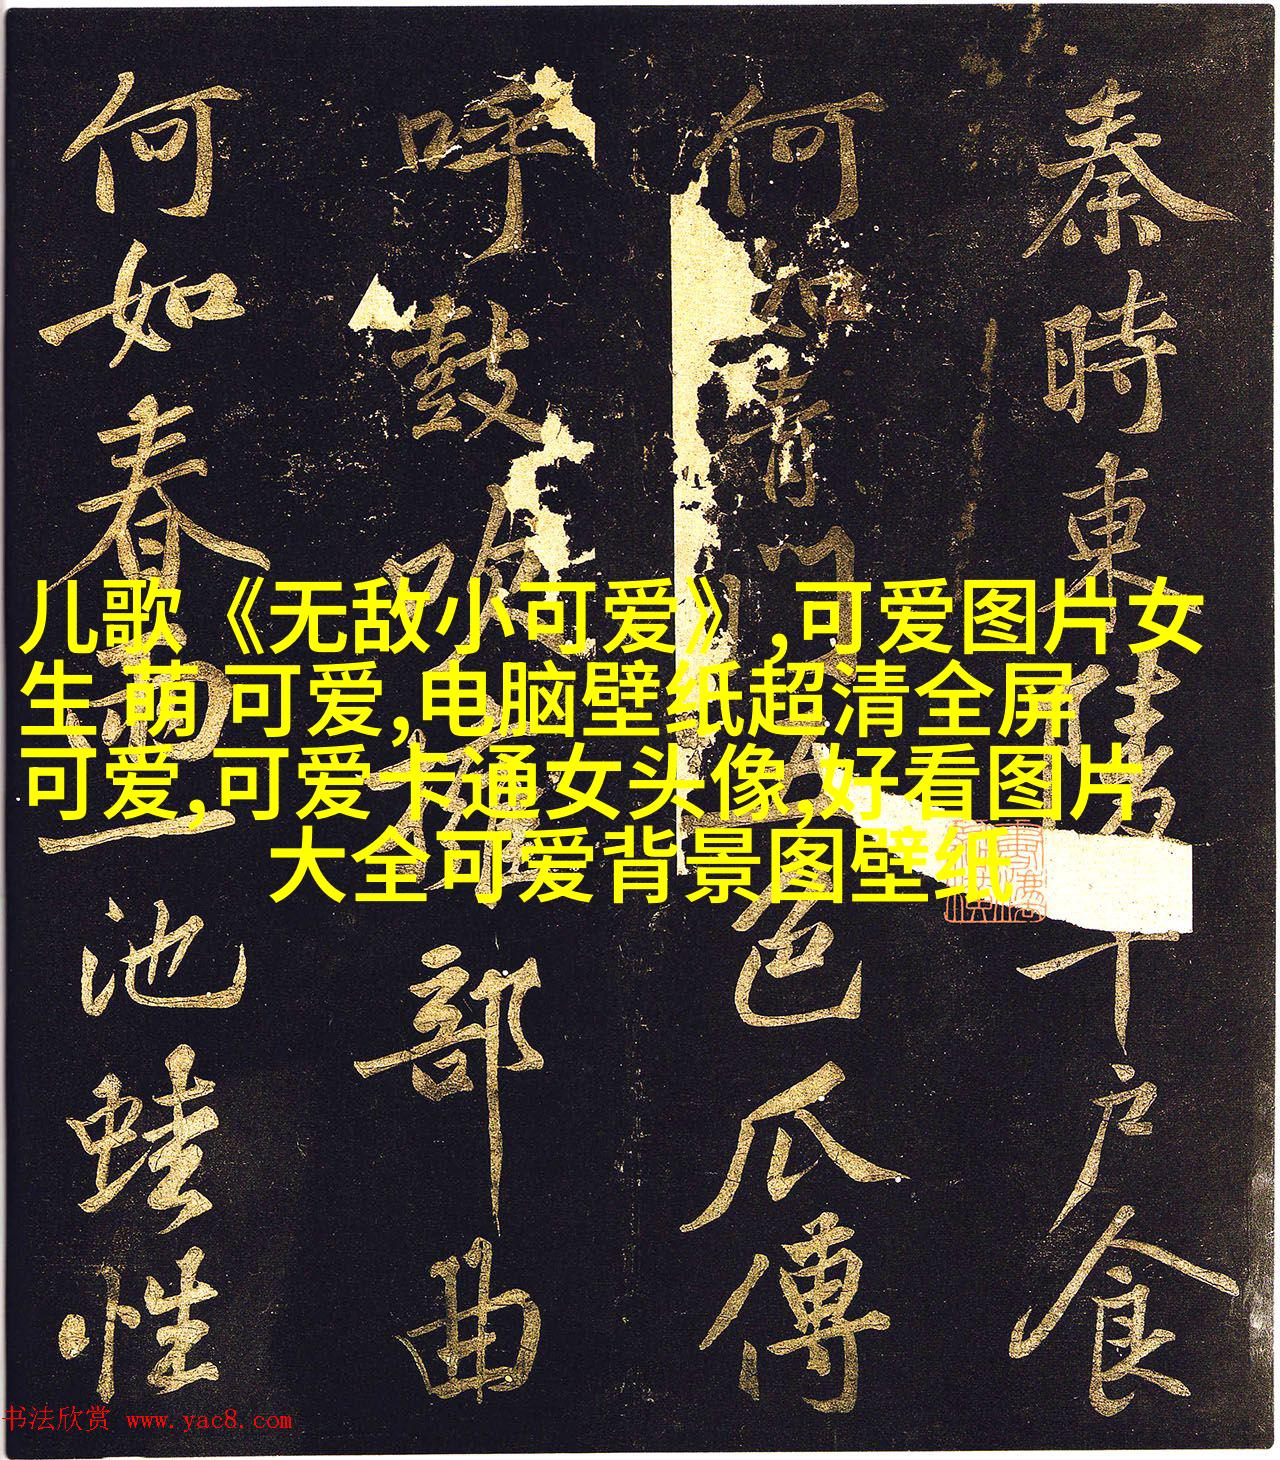 秦時東陵千戶食
何如青門五色瓜傳
呼鼓吹部曲
何如春一池蛙性
儿歌《无敌小可爱》,可爱图片女
生 萌 可爱,电脑壁纸超清全屏
可爱,可爱卡通女头像,好看图片
大全可爱背景图壁纸
书法欣赏 www.yac8.com